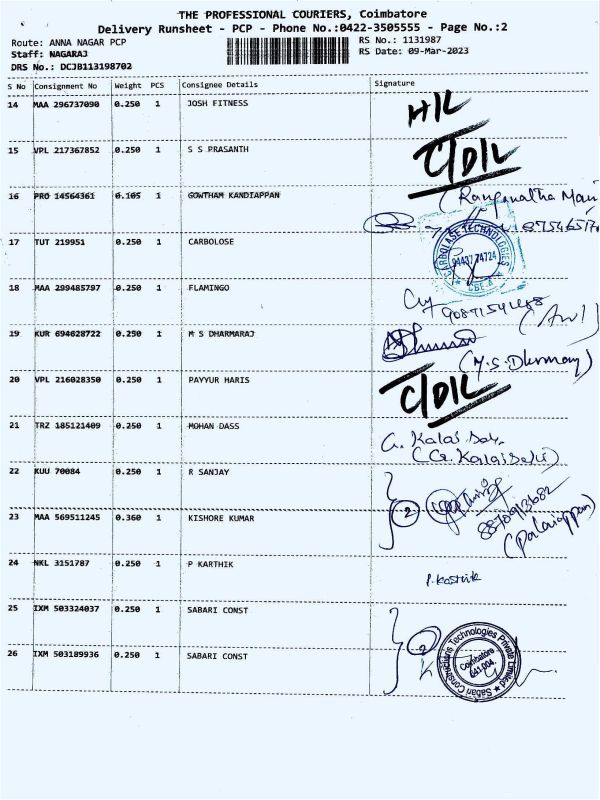 THE PROFESSIONAL COURIERS, Coimbatore
Delivery Runsheet - PCP - Phone No.:0422-3505555 - Page No.:2
Route: ANNA NAGAR PCP
RS No.: 1131987
Staff: NAGARAJ
RS Date: 09-Mar-2023
DRS No.: DCJB113198702
S No Consignment No Weight PCS Consignee Details Signature
14 MAA 296737090 0.250 1 JOSH FITNESS H/L
15 VPL 217367852 0.250 1 S S PRASANTH C/D/L
16 PRO 14564361 0.105 1 GOWTHAM KANDIAPPAN (Ranganatha Mani
17 TUT 219951 0.250 1 CARBOLOSE
CARBOLASE TECHNOLOGIES
94437 74724
CBE-4
18 MAA 299485797 0.250 1 FLAMINGO
19 KUR 694628722 0.250 1 M S DHARMARAJ
20 VPL 216028350 0.250 1 PAYYUR HARIS C/D/L
21 TRZ 185121409 0.250 1 MOHAN DASS G. Kalai
22 KUU 70084 0.250 1 R SANJAY
2
23 MAA 569511245 0.360 1 KISHORE KUMAR
8870913682
(Palaniappan)
24 NKL 3151787 0.250 1 P KARTHIK
P. Karthik
25 IXM 503324037 0.250 1 SABARI CONST
2
26 IXM 503189936 0.250 1 SABARI CONST
Sabari Constructions Technologies Private Limited
Coimbatore
641 004.